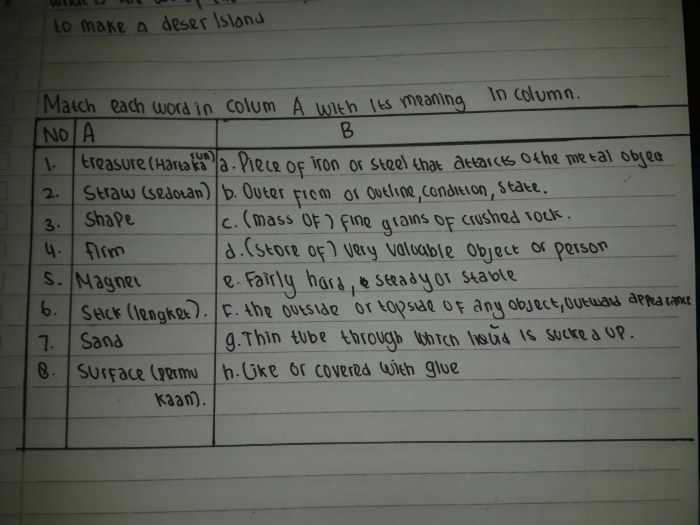 to make a deser Island
Match each word in colum A with Its meaning In column.
NO A B
1. treasure (Harta karun) a. Piece of iron or steel that attarcts othe metal object
2. Straw (sedotan) b. Outer from or outline, condition, state.
3. Shape c. (mass of) fine grains of crushed rock.
4. firm d. (store of) very valuable object or person
5. Magnet e. Fairly hard, steady or stable
6. Stick (lengket). F. the outside or topside of any object, outward appearance
7. Sand g. Thin tube through which liquid is sucked up.
8. Surface (permu h. Like or covered with glue
kaan).